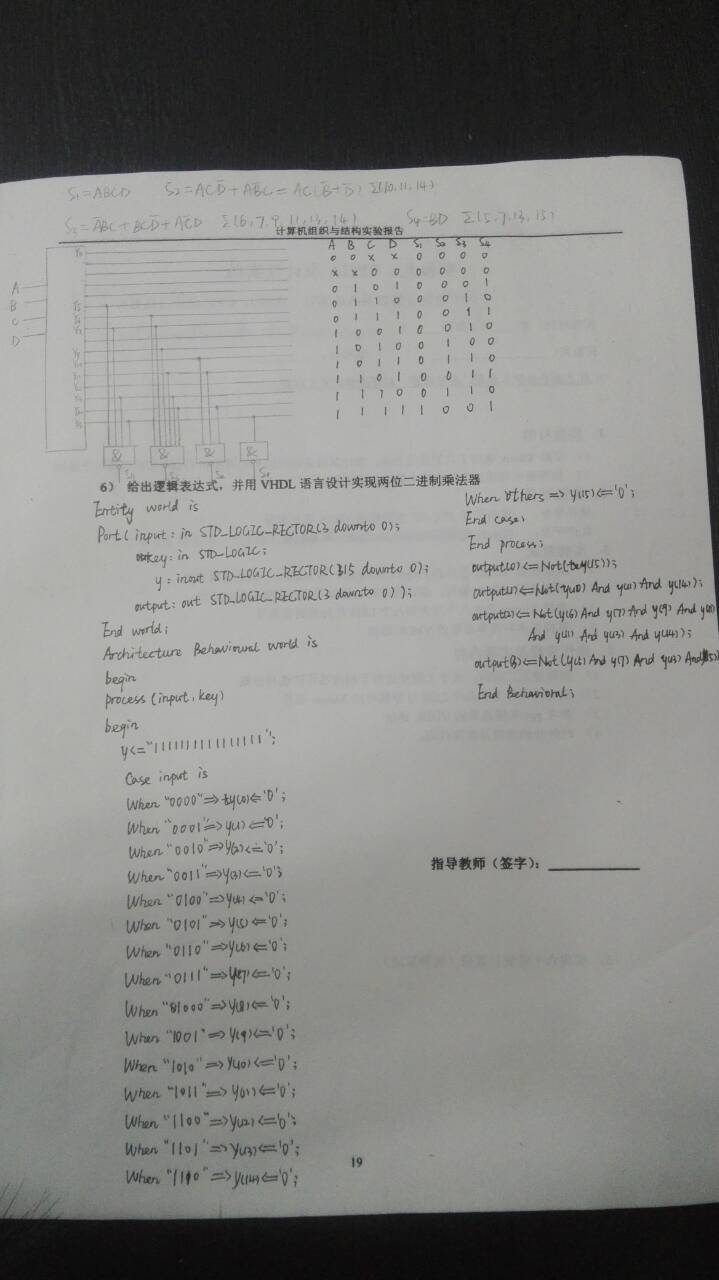 S₁=ABCD S₂=ACD̅+AB̅C=AC(B̅+D̅) Σ(10,11,14)
S₃=A̅BC+BCD̅+AC̅D Σ(6,7,9,11,13,14) S₄=BD Σ(5,7,13,15)
计算机组织与结构实验报告
A B C D S₁ S₂ S₃ S₄
0 0 x x 0 0 0 0
x x 0 0 0 0 0 0
0 1 0 1 0 0 0 1
0 1 1 0 0 0 1 0
0 1 1 1 0 0 1 1
1 0 0 1 0 0 1 0
1 0 1 0 0 1 0 0
1 0 1 1 0 1 1 0
1 1 0 1 0 0 1 1
1 1 1 0 0 1 1 0
1 1 1 1 1 0 0 1
A
B
C
D
& & & &
6） 给出逻辑表达式，并用 VHDL 语言设计实现两位二进制乘法器
Entity world is
Port( input: in STD_LOGIC_RECTOR(3 downto 0);
key: in STD_LOGIC;
y: inout STD_LOGIC_RECTOR(15 downto 0);
output: out STD_LOGIC_RECTOR(3 downto 0) );
End world;
Architecture Behavioural world is
begin
process (input, key)
begin
y<="1111111111111111";
Case input is
When "0000"=>y(0)<='0';
When "0001"=>y(1)<='0';
When "0010"=>y(2)<='0';
When "0011"=>y(3)<='0';
When "0100"=>y(4)<='0';
When "0101"=>y(5)<='0';
When "0110"=>y(6)<='0';
When "0111"=>y(7)<='0';
When "1000"=>y(8)<='0';
When "1001"=>y(9)<='0';
When "1010"=>y(10)<='0';
When "1011"=>y(11)<='0';
When "1100"=>y(12)<='0';
When "1101"=>y(13)<='0';
When "1110"=>y(14)<='0';
When others=>y(15)<='0';
End case;
End process;
output(0)<=Not(y(15));
output(1)<=Not(y(10) And y(11) And y(14));
output(2)<=Not(y(6) And y(7) And y(9) And
And y(11) And y(13) And y(14));
output(3)<=Not(y(5) And y(7) And y(13) And y(15))
End Behavioral;
指导教师（签字）：
19